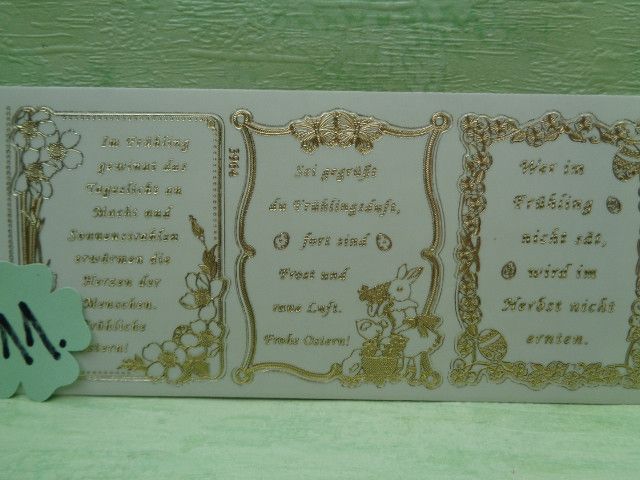 Im Frühling
gewinnt das
Tageslicht an
Macht und
Sonnenstrahlen
erwärmen die
Herzen der
Menschen.
Fröhliche
Ostern!
3904
Sei gegrüßt
du Frühlingsduft,
fort sind
Frost und
raue Luft.
Frohe Ostern!
Wer im
Frühling
nicht sät,
wird im
Herbst nicht
ernten.
M.